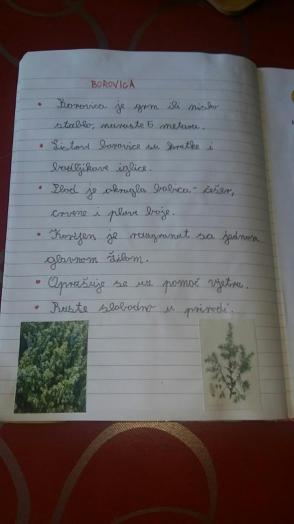 BOROVICA
• Borovica je grm ili nisko
stablo, naraste 5 metara.
• Listovi borovice su kratke i
bodljikave iglice.
• Plod je okrugla bobica - češer,
crvene i plave boje.
• Korijen je razgranat sa jednom
glavnom žilom.
• Oprašuje se uz pomoć vjetra.
• Raste slobodno u prirodi.